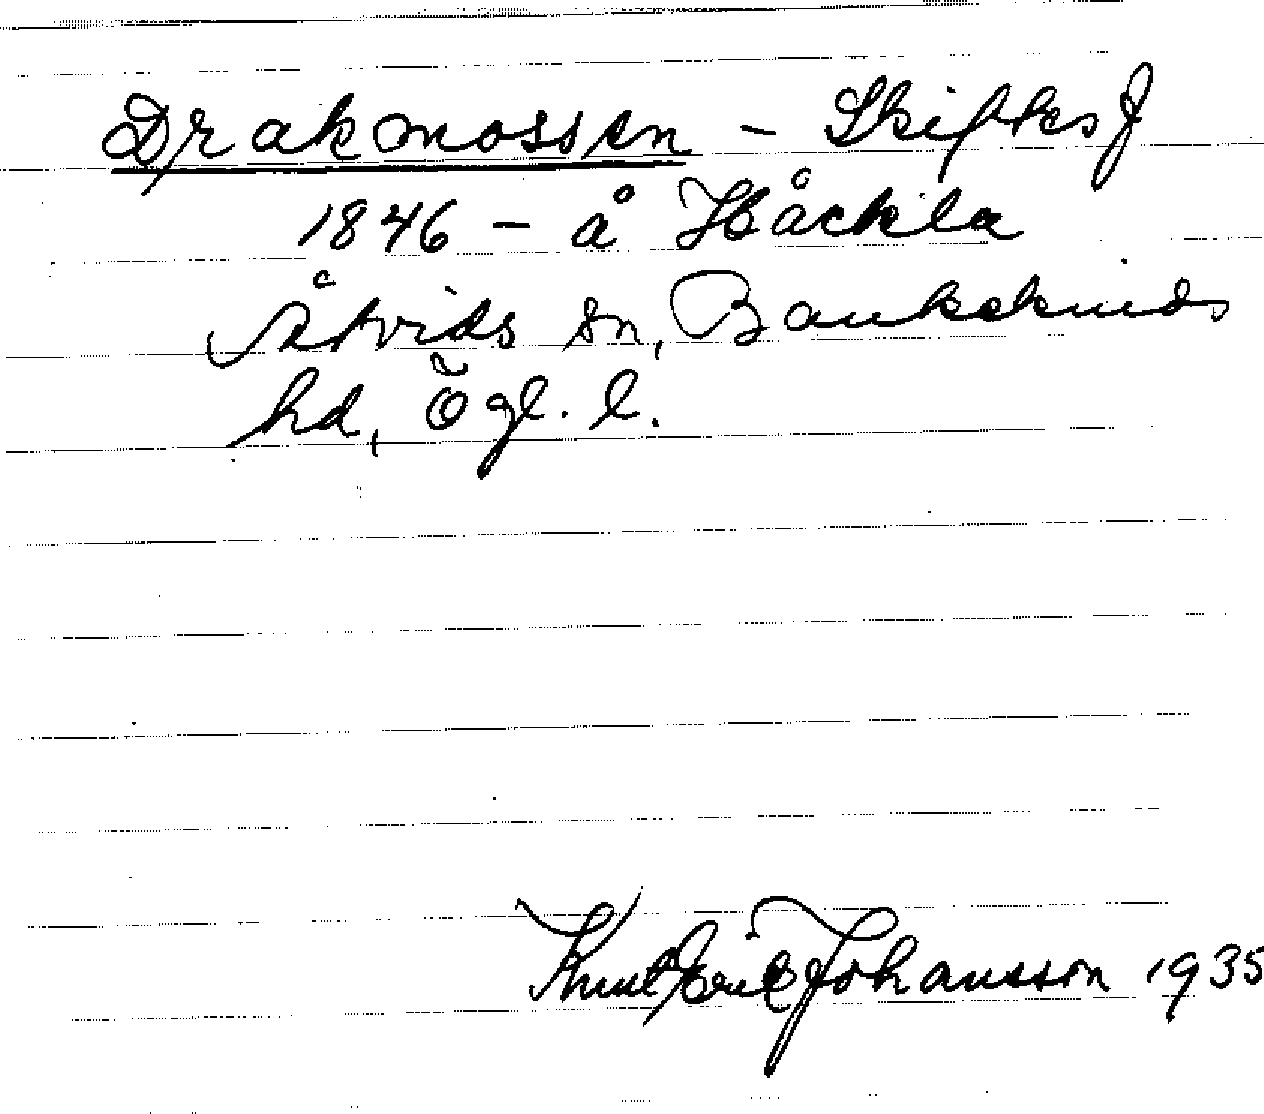 Drakmossen - Skifteskj
1846 - å Håckla
Åtvids sn, Bankekinds
hd, Ögl. l.
Knut Eric Johansson 1935